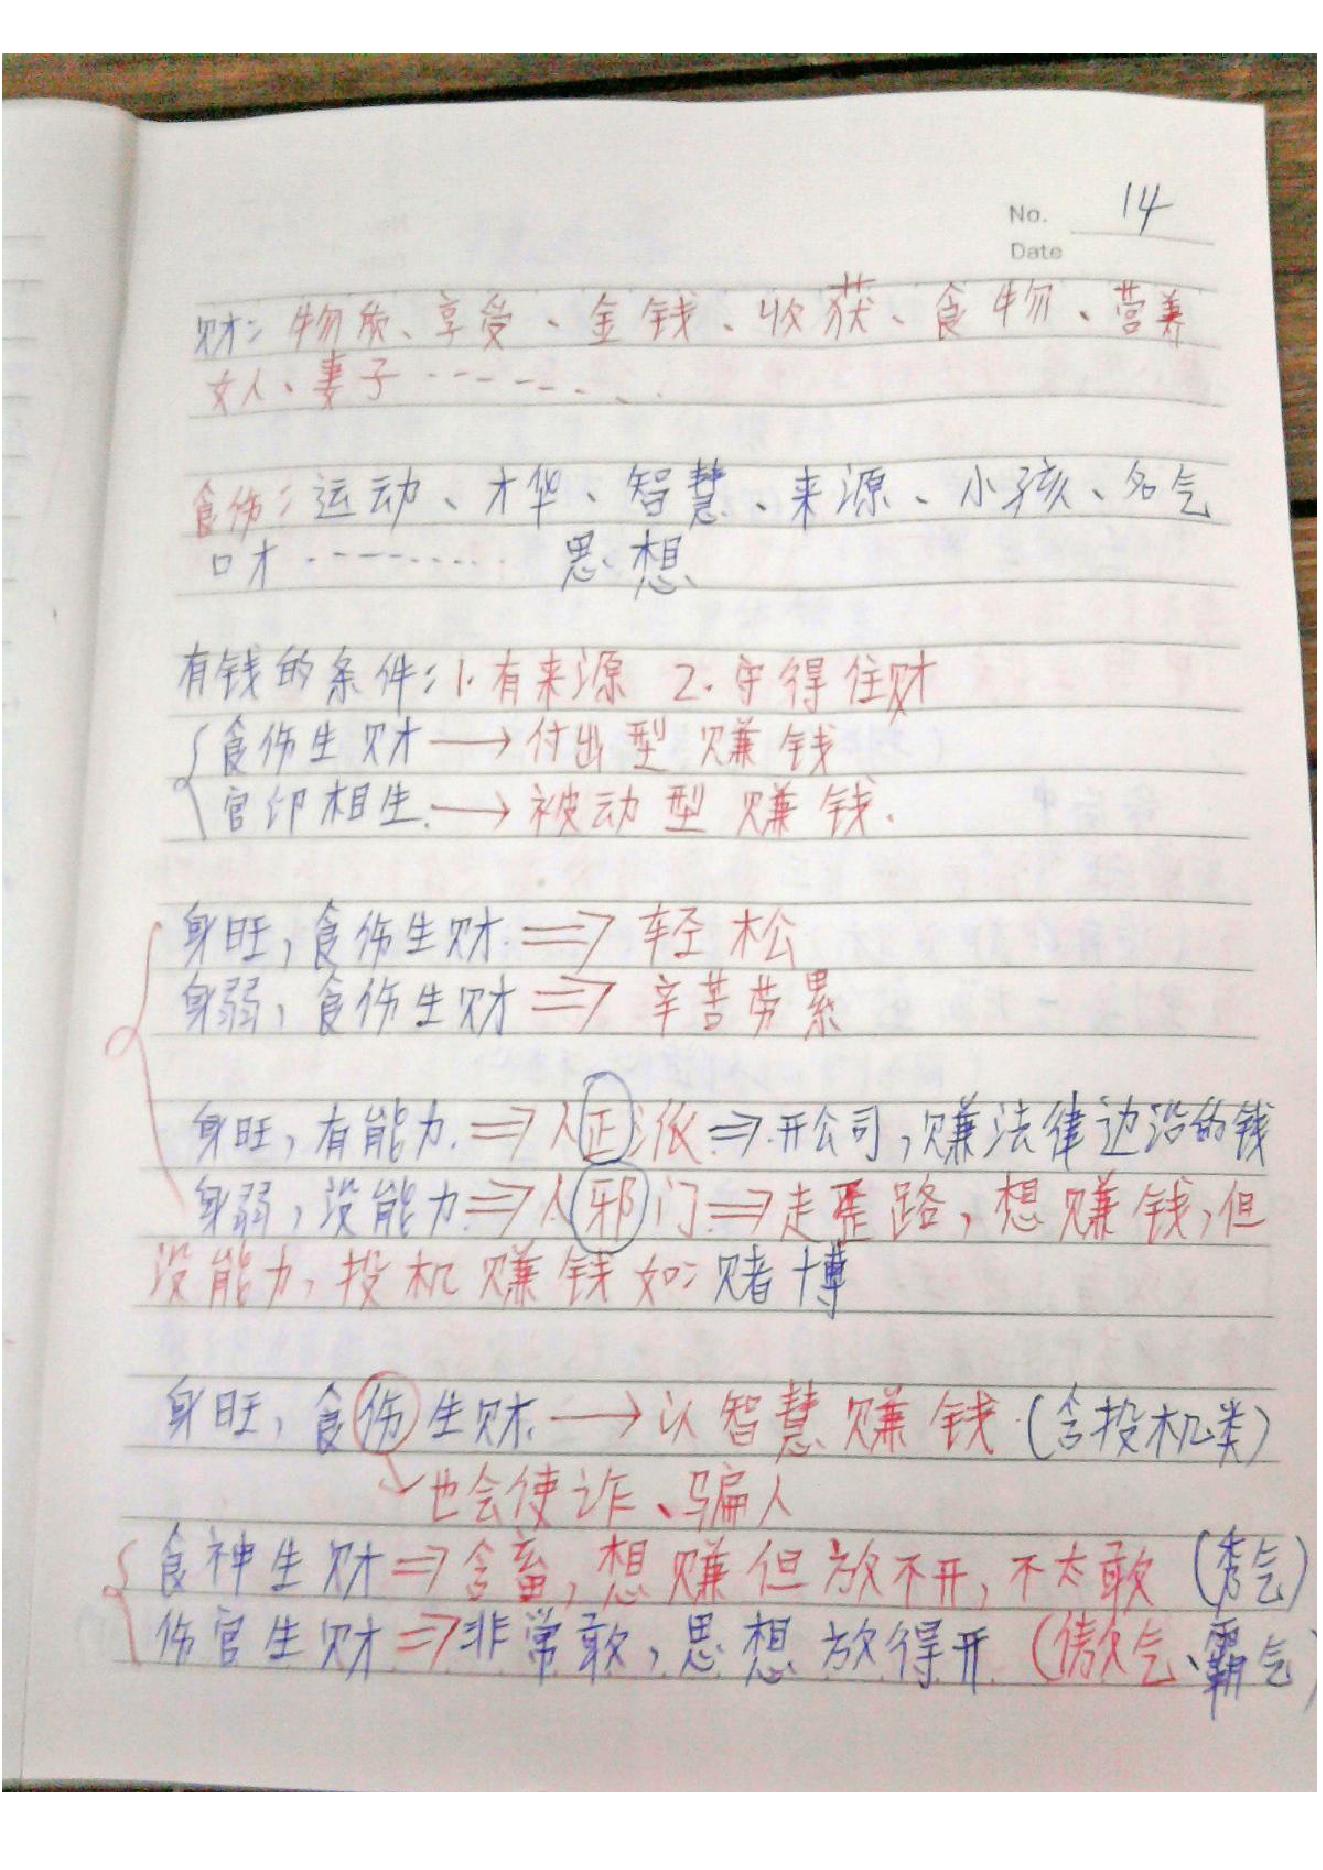 No. 14
Date
财：物质、享受、金钱、收获、食物、营养
女人、妻子…………
食伤：运动、才华、智慧、来源、小孩、名气
口才………… 思想
有钱的条件：1.有来源 2.守得住财
食伤生财→付出型赚钱
官印相生→被动型赚钱.
身旺，食伤生财⇒轻松
身弱，食伤生财⇒辛苦劳累
身旺，有能力⇒人正派⇒开公司，赚法律边沿的钱
身弱，没能力⇒人邪门⇒走歪路，想赚钱，但
没能力，投机赚钱如：赌博
身旺，食伤生财→以智慧赚钱（含投机类）
也会使诈、骗人
食神生财⇒含蓄，想赚但放不开，不太敢（秀气）
伤官生财⇒非常敢，思想放得开（傲气、霸气）